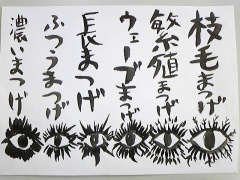 枝毛まつげ
繁殖まつげ
ウェーブまつげ
長まつげ
ふつうまつげ
濃いまつげ